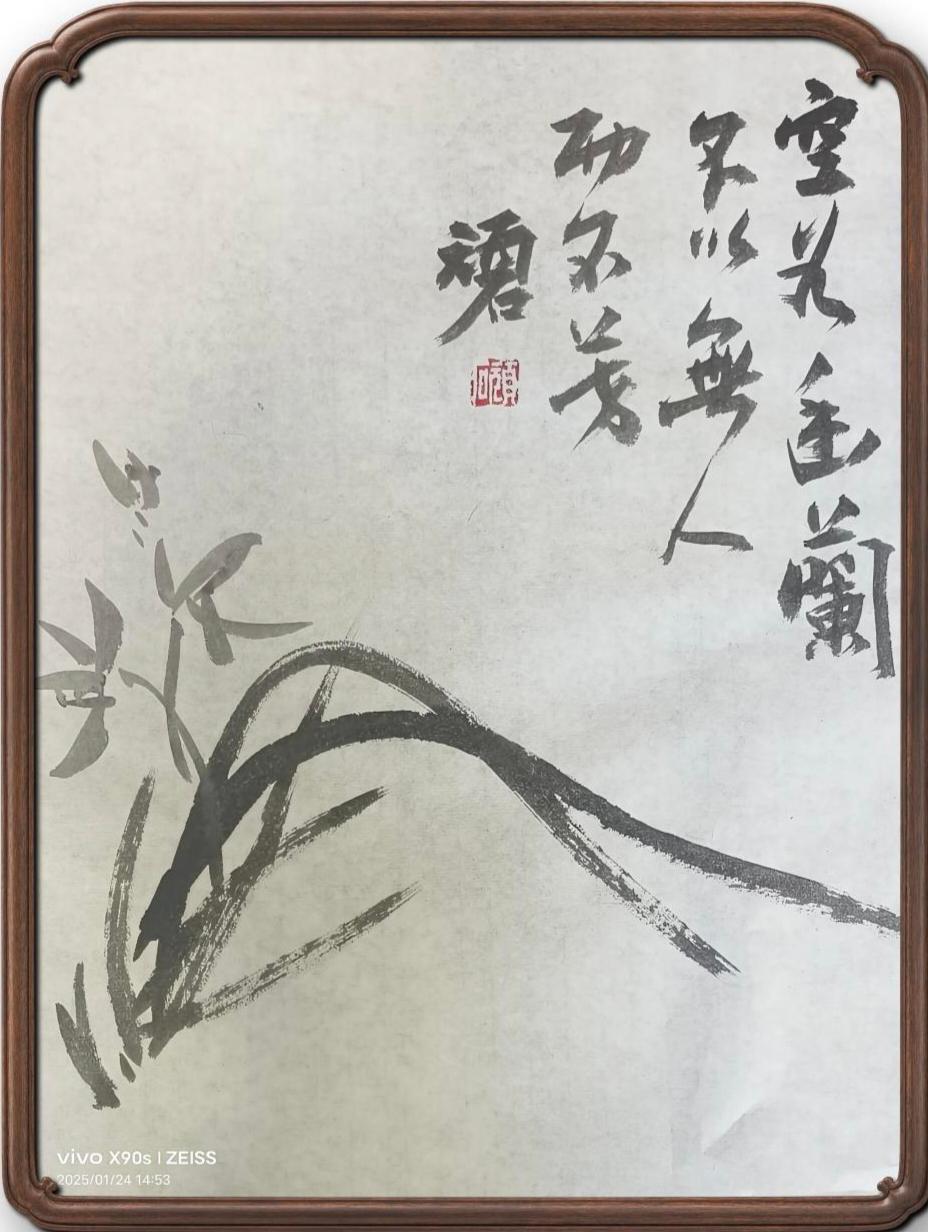 空谷幽蘭
不以無人
而不芳
vivo X90s | ZEISS
2025/01/24 14:53